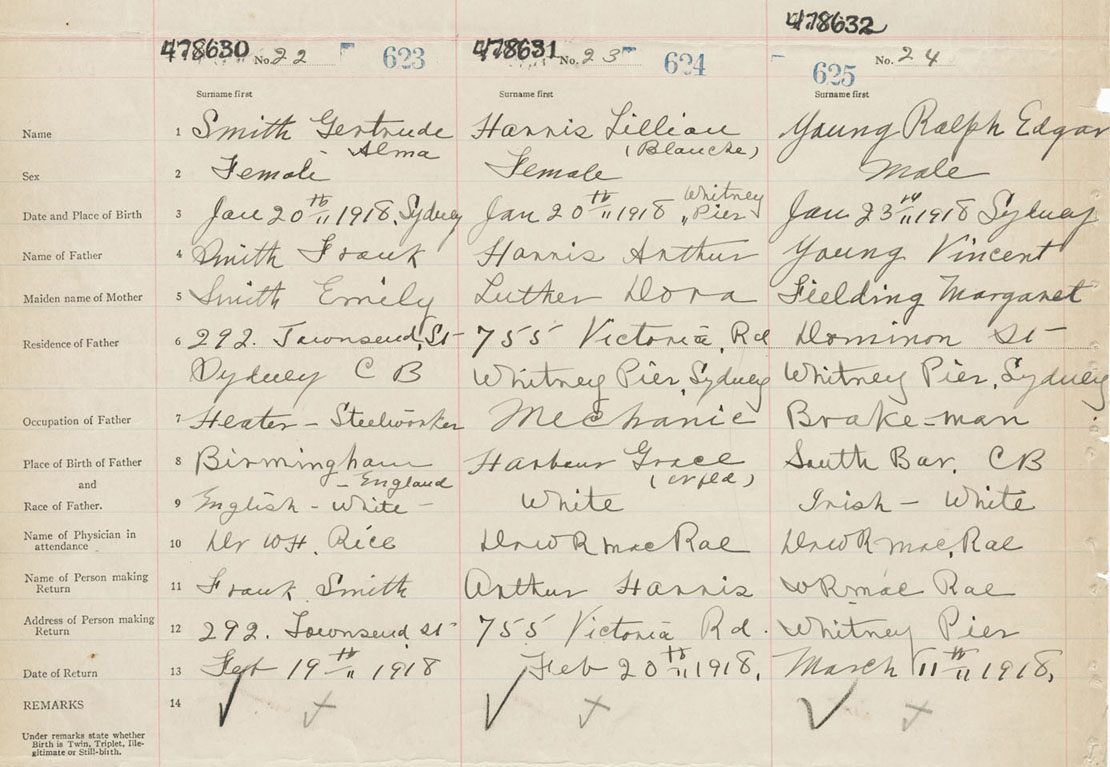 478630 No. 22 623 478631 No. 23 624 478632 625 No. 24
Surname first Surname first Surname first
Name 1 Smith Gertrude Harris Lillian Young Ralph Edgar
Alma (Blanche)
Sex 2 Female Female Male
Date and Place of Birth 3 Jan 20th 1918, Sydney Jan 20th 1918 Whitney Pier Jan 23rd 1918 Sydney
Name of Father 4 Smith Frank Harris Arthur Young Vincent
Maiden name of Mother 5 Smith Emily Luther Dora Fielding Margaret
Residence of Father 6 292. Townsend, St 755 Victoria, Rd Dominon St
Sydney C B Whitney Pier, Sydney Whitney Pier, Sydney
Occupation of Father 7 Heater - Steelworker Mechanic Brake-man
Place of Birth of Father 8 Birmingham Harbour Grace South Bar. CB
and - England
Race of Father. 9 English - White - White Irish - White
Name of Physician in attendance 10 Dr WH. Rice Dr W R MacRae Dr W R Mac, Rae
Name of Person making Return 11 Frank Smith Arthur Harris W R Mac Rae
Address of Person making Return 12 292. Townsend st 755 Victoria Rd. Whitney Pier
Date of Return 13 Feb 19th 1918 Feb 20th 1918, March 11th 1918,
REMARKS 14
Under remarks state whether
Birth is Twin, Triplet, Ille-
gitimate or Still-birth.